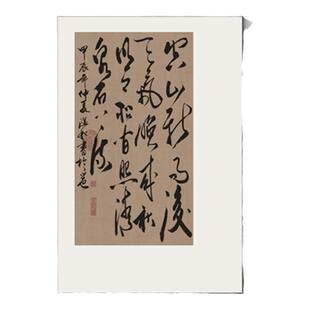 空山新雨後
天氣晚來秋
明月松間照清
泉石上流
甲辰年仲夏書於